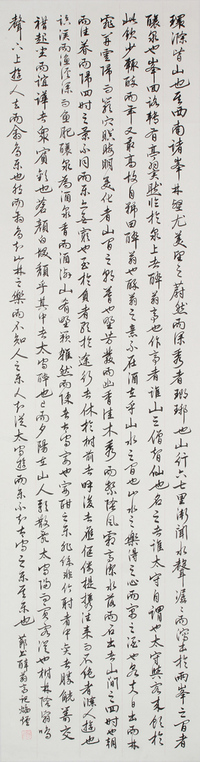 環滁皆山也其西南諸峰林壑尤美望之蔚然而深秀者瑯琊也山行六七里漸聞水聲潺潺而瀉出於兩峰之間者
釀泉也峰回路轉有亭翼然臨於泉上者醉翁亭也作亭者誰山之僧智仙也名之者誰太守自謂也太守與客來飲於
此飲少輒醉而年又最高故自號曰醉翁也醉翁之意不在酒在乎山水之間也山水之樂得之心而寓之酒也若夫日出而林
霏開雲歸而巖穴暝晦明變化者山間之朝暮也野芳發而幽香佳木秀而繁陰風霜高潔水落而石出者山間之四時也朝
而往暮而歸四時之景不同而樂亦無窮也至於負者歌於途行者休於樹前者呼後者應傴僂提攜往來而不絕者滁人遊也臨
溪而漁溪深而魚肥釀泉為酒泉香而酒洌山肴野蔌雜然而前陳者太守宴也宴酣之樂非絲非竹射者中弈者勝觥籌交
錯起坐而諠譁者眾賓歡也蒼顏白髮頹乎其中者太守醉也已而夕陽在山人影散亂太守歸而賓客從也樹林陰翳鳴
聲上下遊人去而禽鳥樂也然而禽鳥知山林之樂而不知人之樂人知從太守遊而樂而不知太守之樂其樂也 節錄醉翁亭記